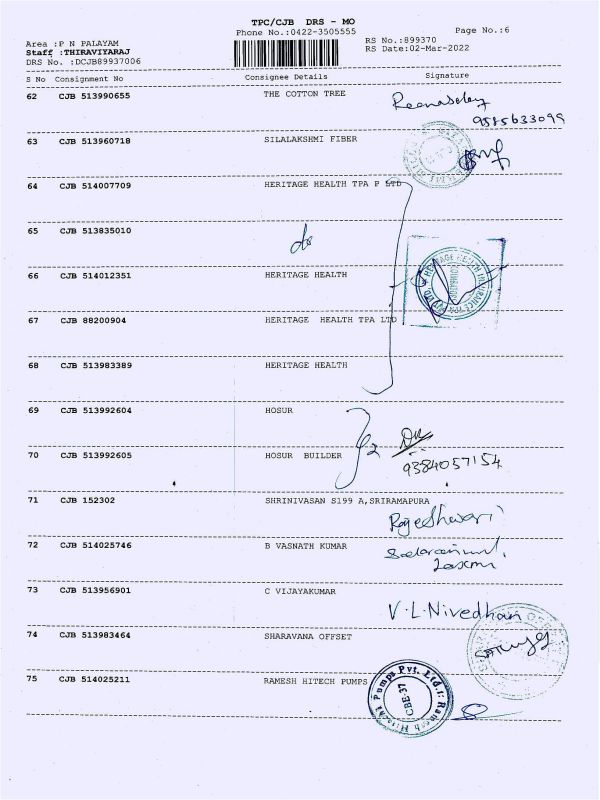 TPC/CJB DRS - MO
Phone No.:0422-3505555
Page No.:6
Area :P N PALAYAM
Staff :THIRAVIYARAJ
DRS No. :DCJB89937006
RS No.:899370
RS Date:02-Mar-2022
S No Consignment No Consignee Details Signature
62 CJB 513990655 THE COTTON TREE
9585633099
63 CJB 513960718 SILALAKSHMI FIBER
64 CJB 514007709 HERITAGE HEALTH TPA P LTD
65 CJB 513835010 do
66 CJB 514012351 HERITAGE HEALTH
HERITAGE HEALTH INSURANCE TPA PVT. LTD.
COIMBATORE
67 CJB 88200904 HERITAGE HEALTH TPA LTD
68 CJB 513983389 HERITAGE HEALTH
69 CJB 513992604 HOSUR
70 CJB 513992605 HOSUR BUILDER
9384057154
71 CJB 152302 SHRINIVASAN S199 A,SRIRAMAPURA
Rajeshwari
72 CJB 514025746 B VASNATH KUMAR
Laxmi
73 CJB 513956901 C VIJAYAKUMAR
V.L.Nivedhan
74 CJB 513983464 SHARAVANA OFFSET
75 CJB 514025211 RAMESH HITECH PUMPS
Ramesh Hitech Pumps Pvt. Ltd.
CBE-37